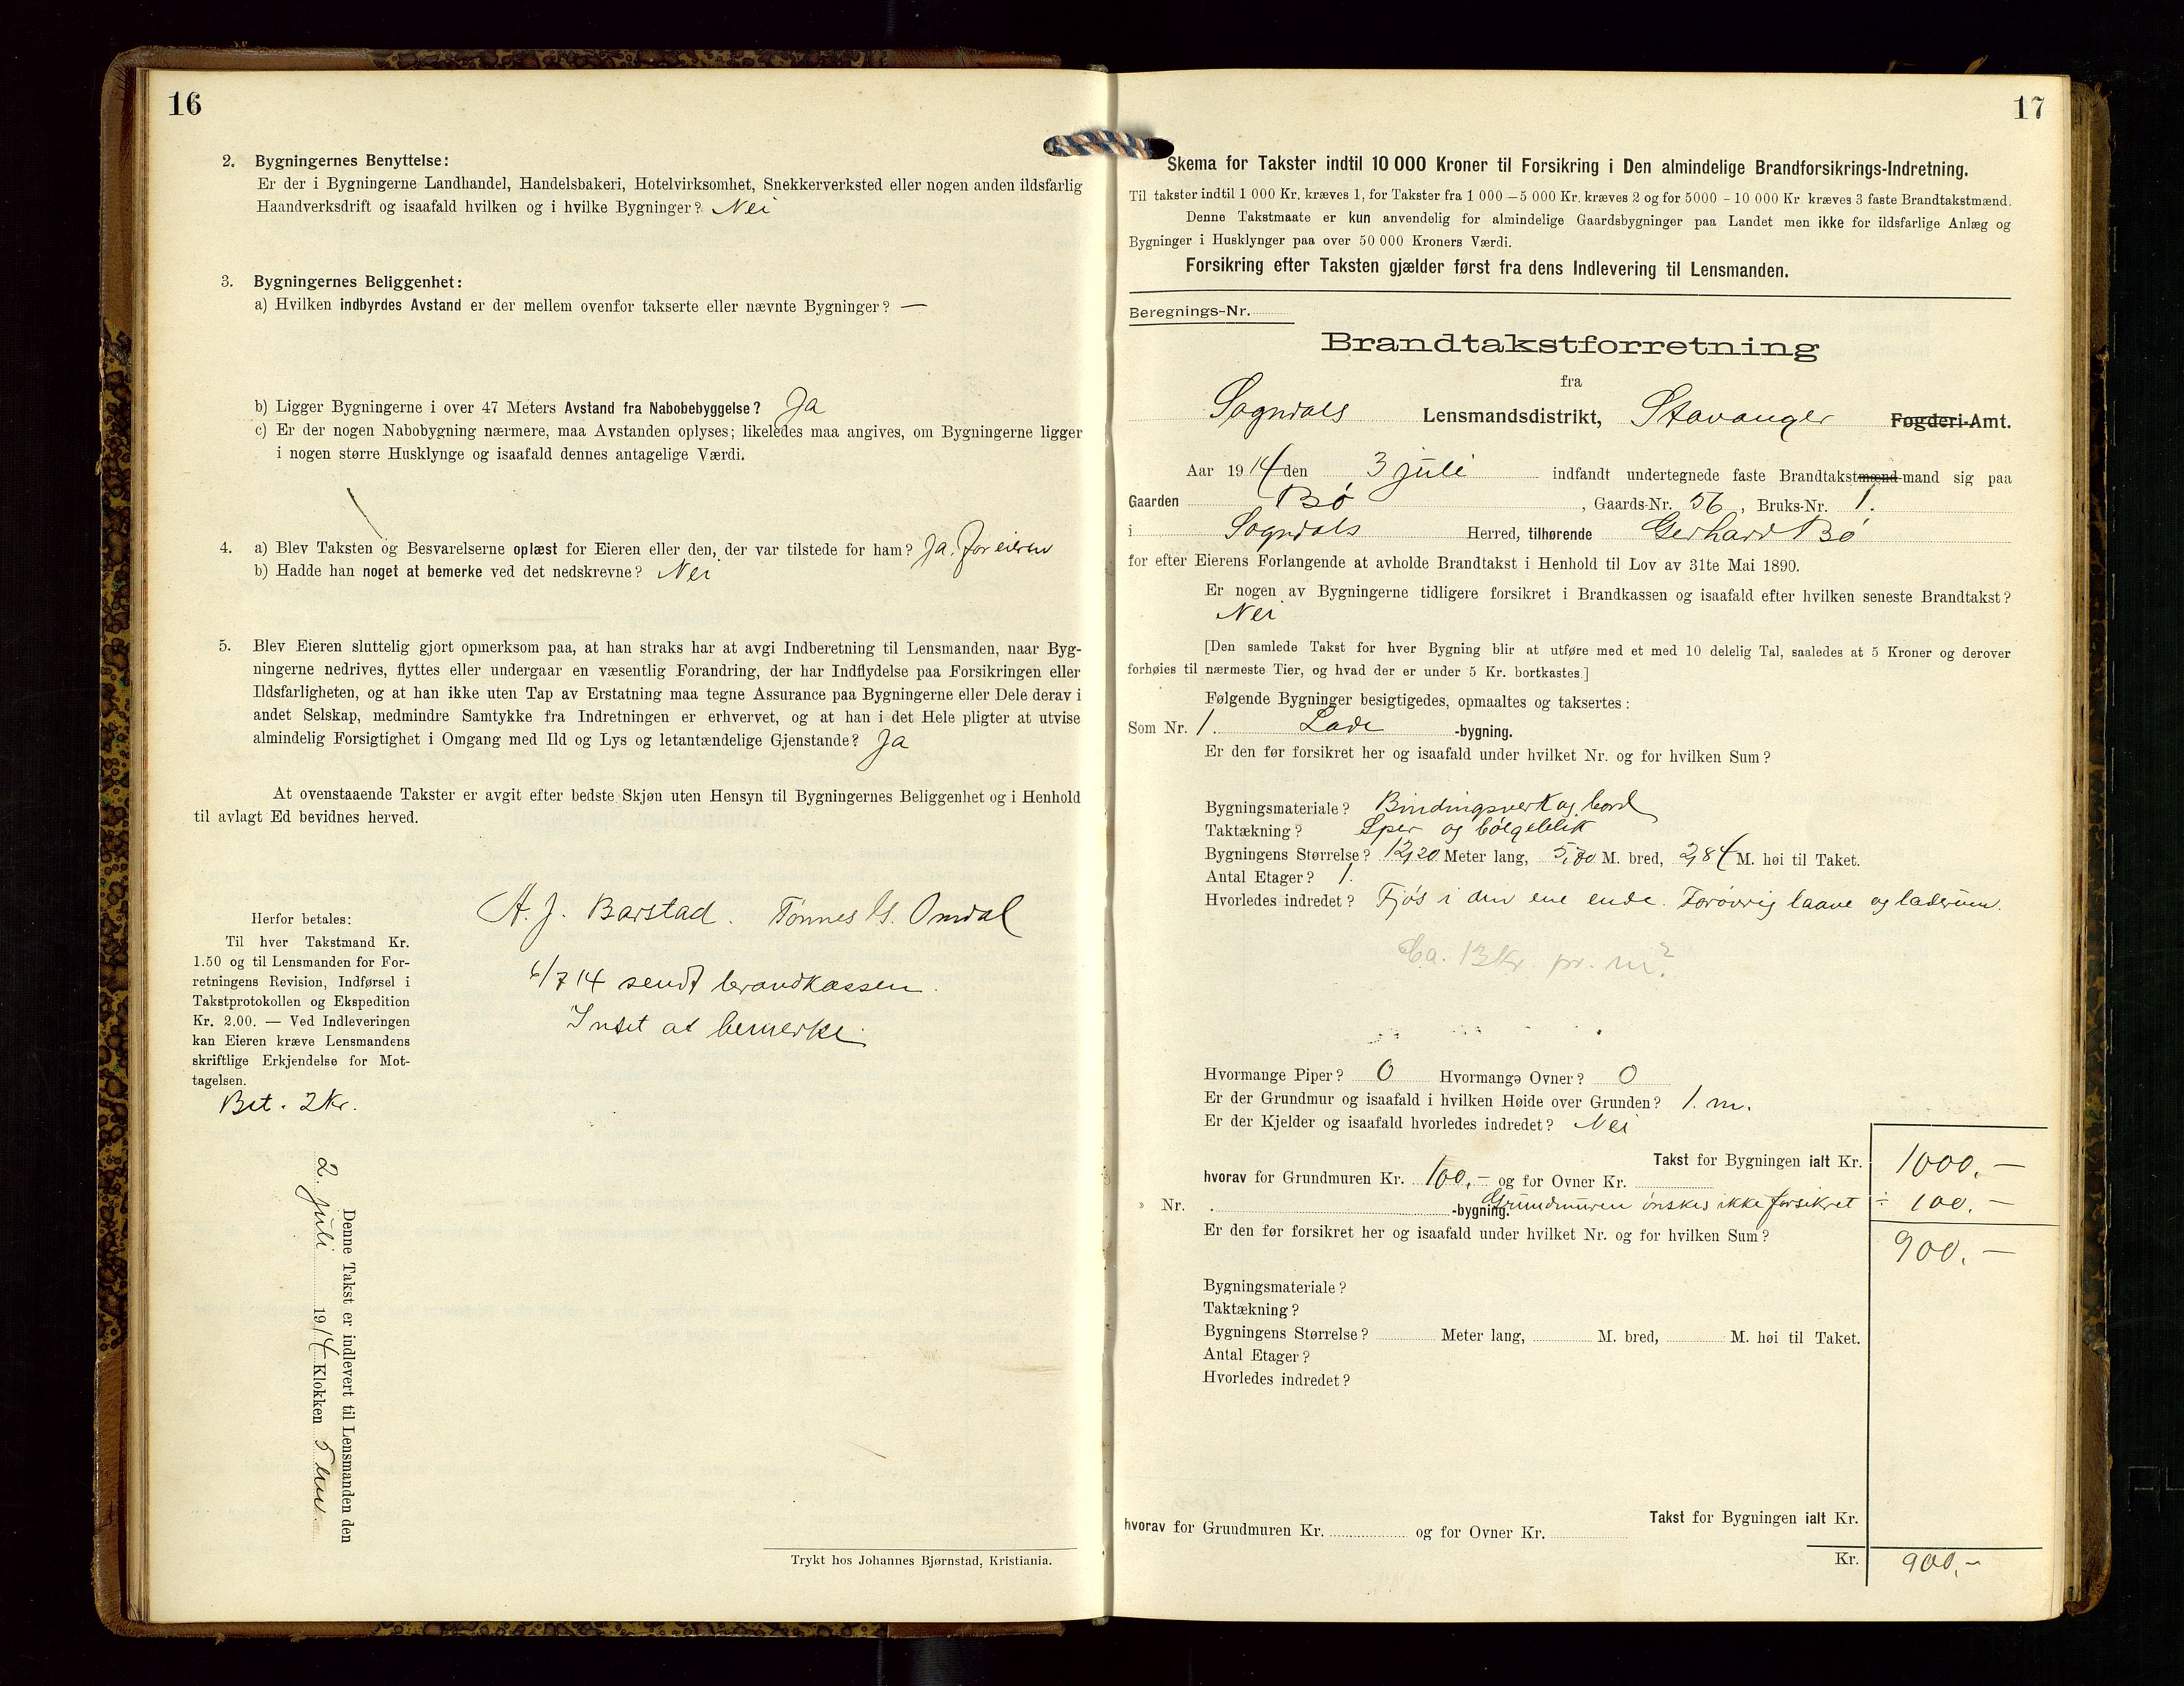 16
2. Bygningernes Benyttelse:
Er der i Bygningerne Landhandel, Handelsbakeri, Hotelvirksomhet, Snekkerverksted eller nogen anden ildsfarlig
Haandverksdrift og isaafald hvilken og i hvilke Bygninger? Nei
3. Bygningernes Beliggenhet:
a) Hvilken indbyrdes Avstand er der mellem ovenfor takserte eller nævnte Bygninger? —
b) Ligger Bygningerne i over 47 Meters Avstand fra Nabobebyggelse? Ja
c) Er der nogen Nabobygning nærmere, maa Avstanden oplyses; likeledes maa angives, om Bygningerne ligger
i nogen større Husklynge og isaafald dennes antagelige Værdi.
4. a) Blev Taksten og Besvarelserne oplæst for Eieren eller den, der var tilstede for ham? Ja. For eieren
b) Hadde han noget at bemerke ved det nedskrevne? Nei
5. Blev Eieren sluttelig gjort opmerksom paa, at han straks har at avgi Indberetning til Lensmanden, naar Byg-
ningerne nedrives, flyttes eller undergaar en væsentlig Forandring, der har Indflydelse paa Forsikringen eller
Ildsfarligheten, og at han ikke uten Tap av Erstatning maa tegne Assurance paa Bygningerne eller Dele derav i
andet Selskap, medmindre Samtykke fra Indretningen er erhvervet, og at han i det Hele pligter at utvise
almindelig Forsigtighet i Omgang med Ild og Lys og letantændelige Gjenstande? Ja
At ovenstaaende Takster er avgit efter bedste Skjøn uten Hensyn til Bygningernes Beliggenhet og i Henhold
til avlagt Ed bevidnes herved.
A. J. Barstad. Tønnes G. Omdal
6/7 14 sendt brandkassen.
Intet at bemerke.
Herfor betales:
Til hver Takstmand Kr.
1.50 og til Lensmanden for For-
retningens Revision, Indførsel i
Takstprotokollen og Ekspedition
Kr. 2.00. — Ved Indleveringen
kan Eieren kræve Lensmandens
skriftlige Erkjendelse for Mot-
tagelsen.
Bet. 2 kr.
Denne Takst er indlevert til Lensmanden den
2. juli 1914 Klokken 5 em.
Trykt hos Johannes Bjørnstad, Kristiania.
17
Skema for Takster indtil 10 000 Kroner til Forsikring i Den almindelige Brandforsikrings-Indretning.
Til takster indtil 1 000 Kr. kræves 1, for Takster fra 1 000 — 5 000 Kr. kræves 2 og for 5000 - 10 000 Kr kræves 3 faste Brandtakstmænd.
Denne Takstmaate er kun anvendelig for almindelige Gaardsbygninger paa Landet men ikke for ildsfarlige Anlæg og
Bygninger i Husklynger paa over 50 000 Kroners Værdi.
Forsikring efter Taksten gjælder først fra dens Indlevering til Lensmanden.
Beregnings-Nr.
Brandtakstforretning
fra
Sogndals Lensmandsdistrikt, Stavanger Fogderi-Amt.
Aar 1914 den 3 juli indfandt undertegnede faste Brandtakstmænd-mand sig paa
Gaarden Bø, Gaards-Nr. 56, Bruks-Nr. 1.
i Sogndals Herred, tilhørende Gerhard Bø
for efter Eierens Forlangende at avholde Brandtakst i Henhold til Lov av 31te Mai 1890.
Er nogen av Bygningerne tidligere forsikret i Brandkassen og isaafald efter hvilken seneste Brandtakst?
Nei
[Den samlede Takst for hver Bygning blir at utføre med et med 10 delelig Tal, saaledes at 5 Kroner og derover
forhøies til nærmeste Tier, og hvad der er under 5 Kr. bortkastes.]
Følgende Bygninger besigtigedes, opmaaltes og taksertes:
Som Nr. 1. Lade -bygning.
Er den før forsikret her og isaafald under hvilket Nr. og for hvilken Sum?
Bygningsmateriale? Bindingsverk og bord
Taktækning? Sper og bølgeblik
Bygningens Størrelse? 12,20 Meter lang, 5,80 M. bred, 2,84 M. høi til Taket.
Antal Etager? 1.
Hvorledes indredet? Fjøs i den ene ende. Forøvrig laave og laderum.
Ca. 13 kr. pr. m²
Hvormange Piper? 0 Hvormange Ovner? 0
Er der Grundmur og isaafald i hvilken Høide over Grunden? 1. m.
Er der Kjelder og isaafald hvorledes indredet? Nei
Takst for Bygningen ialt Kr. 1000.—
hvorav for Grundmuren Kr. 100,- og for Ovner Kr.
» Nr. -bygning. Grundmuren ønskes ikke forsikret ÷ 100.—
Er den før forsikret her og isaafald under hvilket Nr. og for hvilken Sum? 900.—
Bygningsmateriale?
Taktækning?
Bygningens Størrelse? Meter lang, M. bred, M. høi til Taket.
Antal Etager?
Hvorledes indredet?
Takst for Bygningen ialt Kr.
hvorav for Grundmuren Kr. og for Ovner Kr.
Kr. 900,-